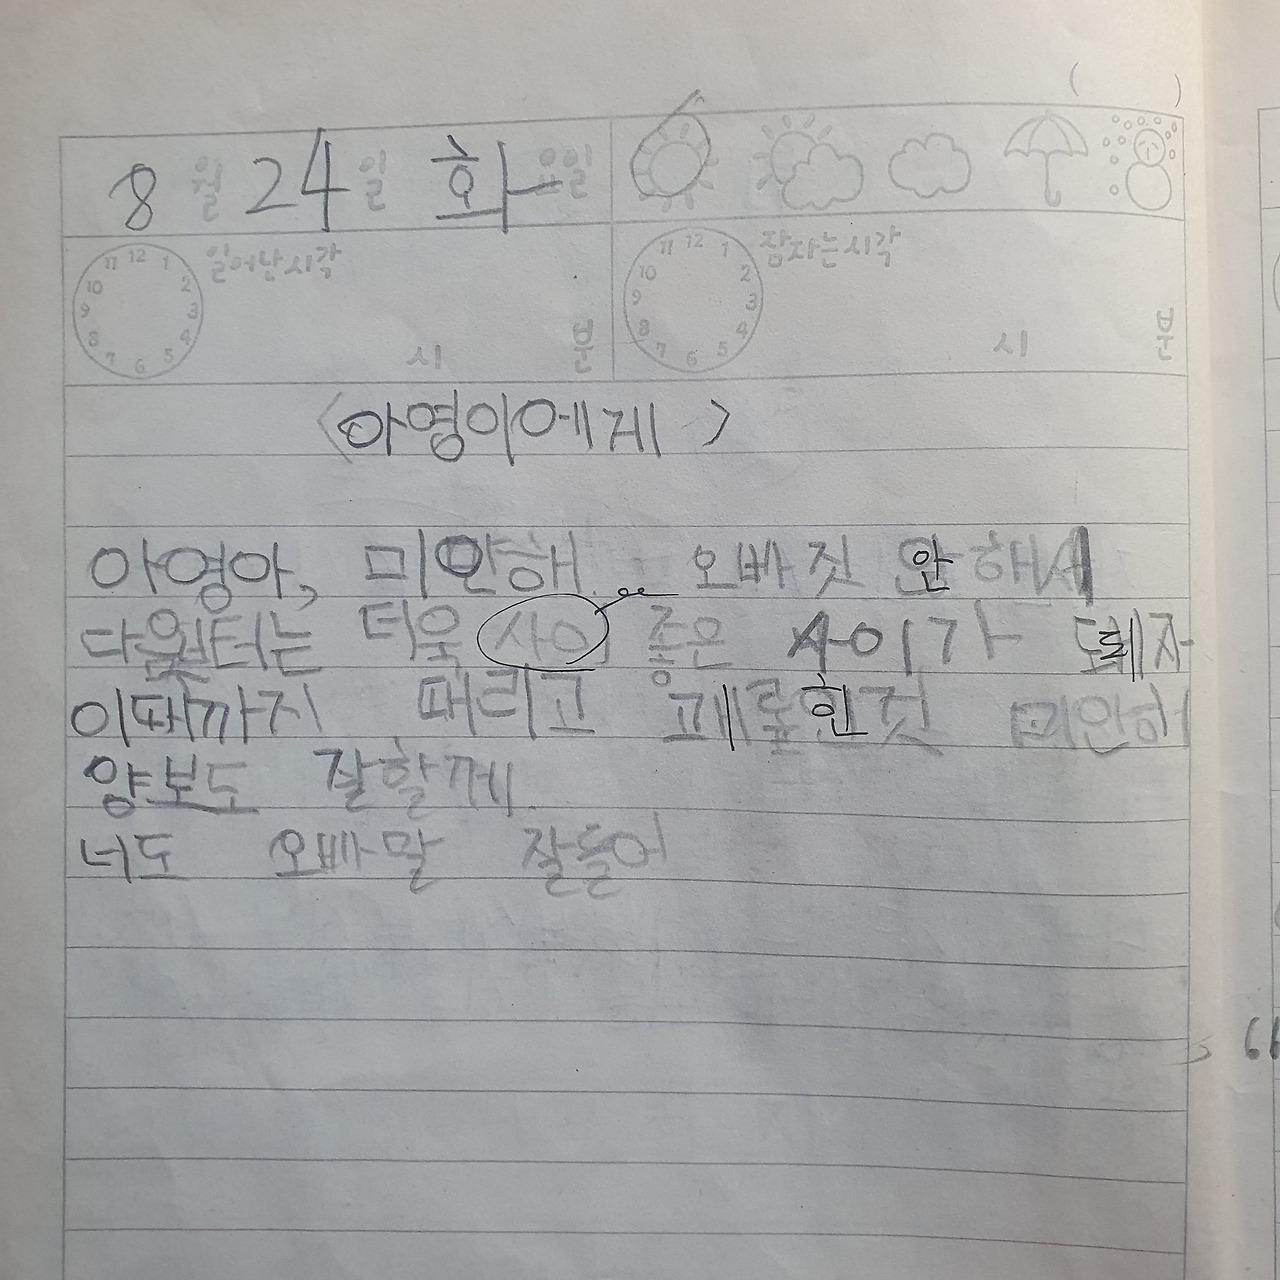 ( )
8월 24일 화요일
일어난시각 시 분 잠자는시각 시 분
11 12 1 2 3 4 5 6 7 8 9 10
11 12 1 2 3 4 5 6 7 8 9 10
<아영이에게>
아영아, 미안해. 오빠 짓 안해서
다음터는 더욱 사이 좋은 사이가 돼자
이때까지 때리고 괴롭힌것 미안해
양보도 잘할께.
너도 오빠말 잘들어
66